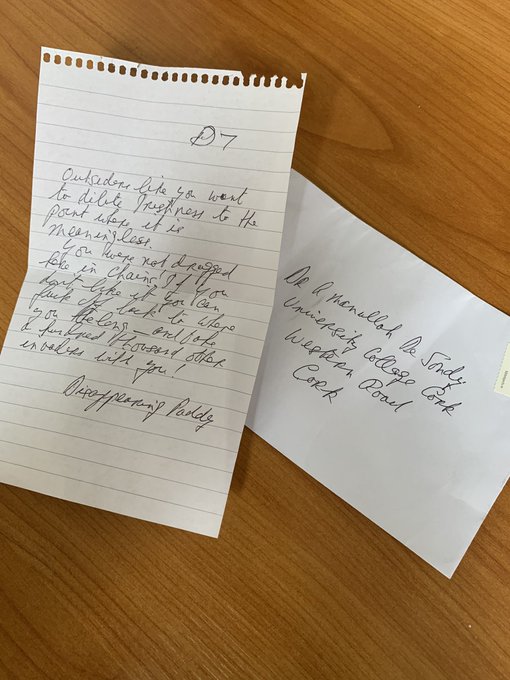 D 7
Outsiders like you want
to dilute Irishness to the
point where it is
meaningless.
You were not dragged
here in chains! If you
don't like it you can
fuck off back to where
you belong – and take
a hundred thousand other
invaders like you!
Disappearing Paddy
Dr Amanullah De Sondy
University College Cork
Western Road
Cork